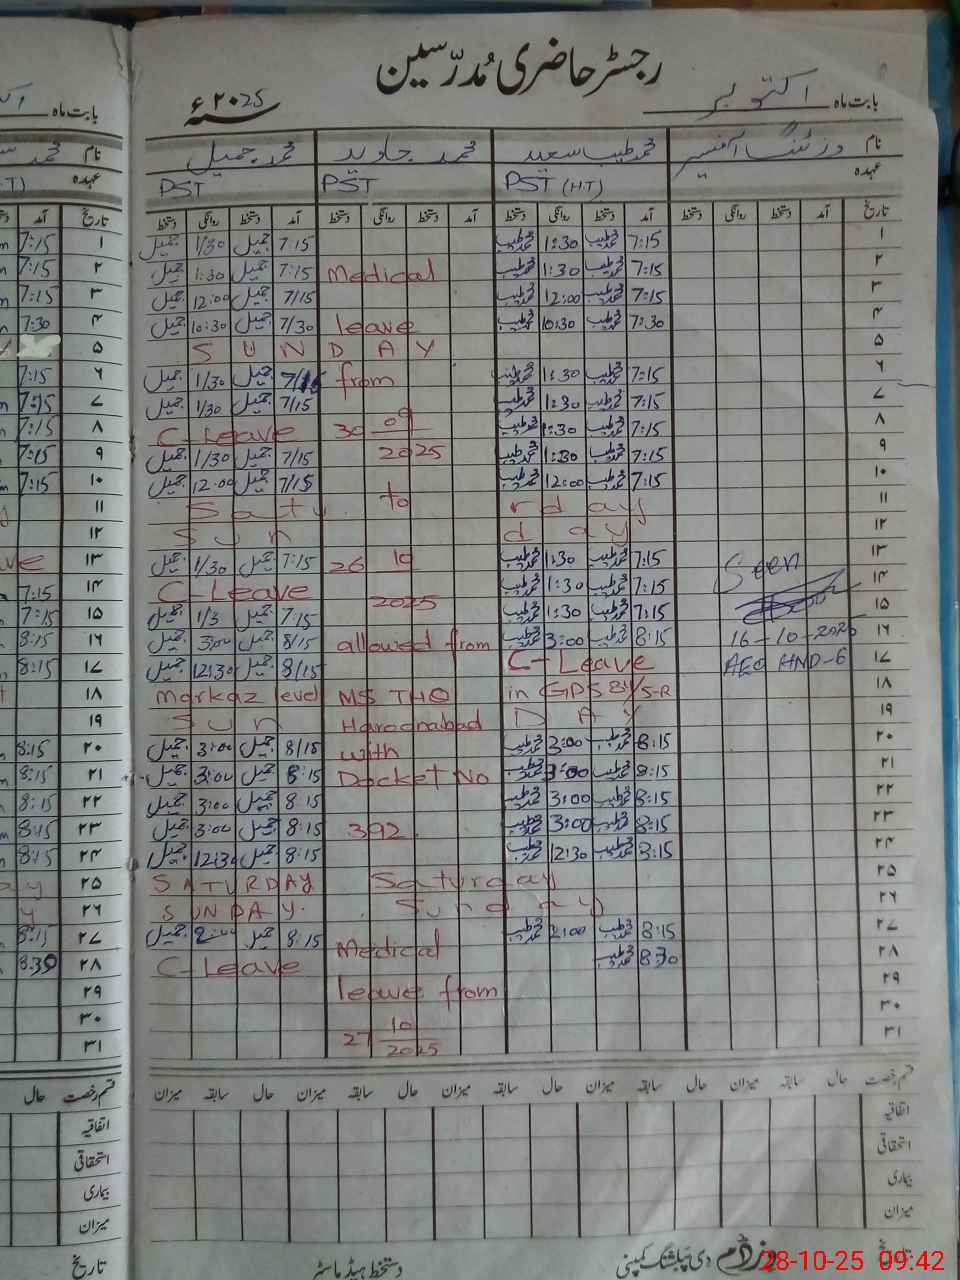 رجسٹر حاضری مُدرّسین
بابت ماہ اکتوبر ۲۰25ء
نام وزٹنگ آفیسر محمد طیب سعید محمد جاوید محمد جمیل
عہدہ PST (H.T) PST PST
تاریخ آمد دستخط روانگی دستخط آمد دستخط روانگی دستخط آمد دستخط روانگی دستخط آمد دستخط روانگی دستخط
۱ 7:15 محمد طیب 1:30 محمد طیب 7:15 جمیل 1/30 جمیل
۲ 7:15 محمد طیب 1:30 محمد طیب Medical 7:15 جمیل 1:30 جمیل
۳ 7:15 محمد طیب 12:00 محمد طیب 7/15 جمیل 12:00 جمیل
۴ 7:30 محمد طیب 10:30 محمد طیب leave 7/30 جمیل 10:30 جمیل
۵ SUNDAY
۶ 7:15 محمد طیب 1:30 محمد طیب from 7/15 جمیل 1/30 جمیل
۷ 7:15 محمد طیب 1:30 محمد طیب 7/15 جمیل 1/30 جمیل
۸ 7:15 محمد طیب 1:30 محمد طیب 30 09 C-Leave
۹ 7:15 محمد طیب 1:30 محمد طیب 2025 7/15 جمیل 1/30 جمیل
۱۰ 7:15 محمد طیب 12:00 محمد طیب 7/15 جمیل 12:00 جمیل
۱۱ Satu to rday
۱۲ Sun day
۱۳ 7:15 محمد طیب 1:30 محمد طیب 26 10 7:15 جمیل 1/30 جمیل Seen
۱۴ 7:15 محمد طیب 1:30 محمد طیب C-Leave
۱۵ 7:15 محمد طیب 1:30 محمد طیب 2025 7:15 جمیل 1/3 جمیل
۱۶ 8:15 محمد طیب 3:00 محمد طیب allowed from 8/15 جمیل 3:00 جمیل 16-10-2025
۱۷ C-Leave 8/15 جمیل 12:30 جمیل AEO HND-6
۱۸ markaz level MS THQ in GPS 84/5-R
۱۹ Sun Haroonabad DAY
۲۰ 8:15 محمد طیب 3:00 محمد طیب with 8/15 جمیل 3:00 جمیل
۲۱ 8:15 محمد طیب 3:00 محمد طیب Docket No 8:15 جمیل 3:00 جمیل
۲۲ 8:15 محمد طیب 3:00 محمد طیب 8:15 جمیل 3:00 جمیل
۲۳ 8:15 محمد طیب 3:00 محمد طیب 392 8:15 جمیل 3:00 جمیل
۲۴ 8:15 محمد طیب 12:30 محمد طیب 8:15 جمیل 12:30 جمیل
۲۵ SATURDAY Saturday
۲۶ SUNDAY. Sunday
۲۷ 8:15 محمد طیب 2:00 محمد طیب Medical 8:15 جمیل 2:00 جمیل
۲۸ 8:30 محمد طیب C-Leave
۲۹ leave from
۳۰ 10
۳۱ 27 2025
قسم رخصت حال سابقہ میزان حال سابقہ میزان حال سابقہ میزان حال سابقہ میزان
اتفاقیہ
استحقاقی
بیماری
میزان
تاریخ دی پبلشنگ کمپنی دستخط ہیڈماسٹر
28-10-25 09:42